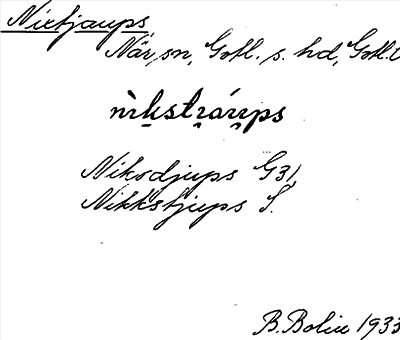 Nixtjaups
När, sn, Gotl. s. hd, Gotl. l
nìkstráups
Niksdjups G31,
Nikkstjups S.
B. Bolin 1933